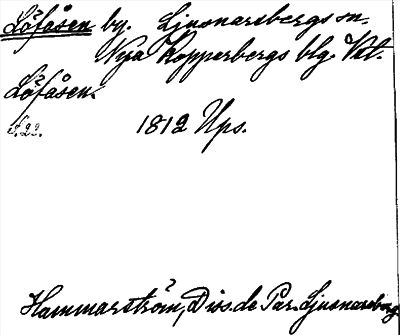 Löfåsen by. Ljusnarsbergs sn.
Nya Kopparbergs blg. Vst.
Löfåsen.
S. 22.
1812 Ups.
Hammarström, Diss. de Par. Ljusnarsberg